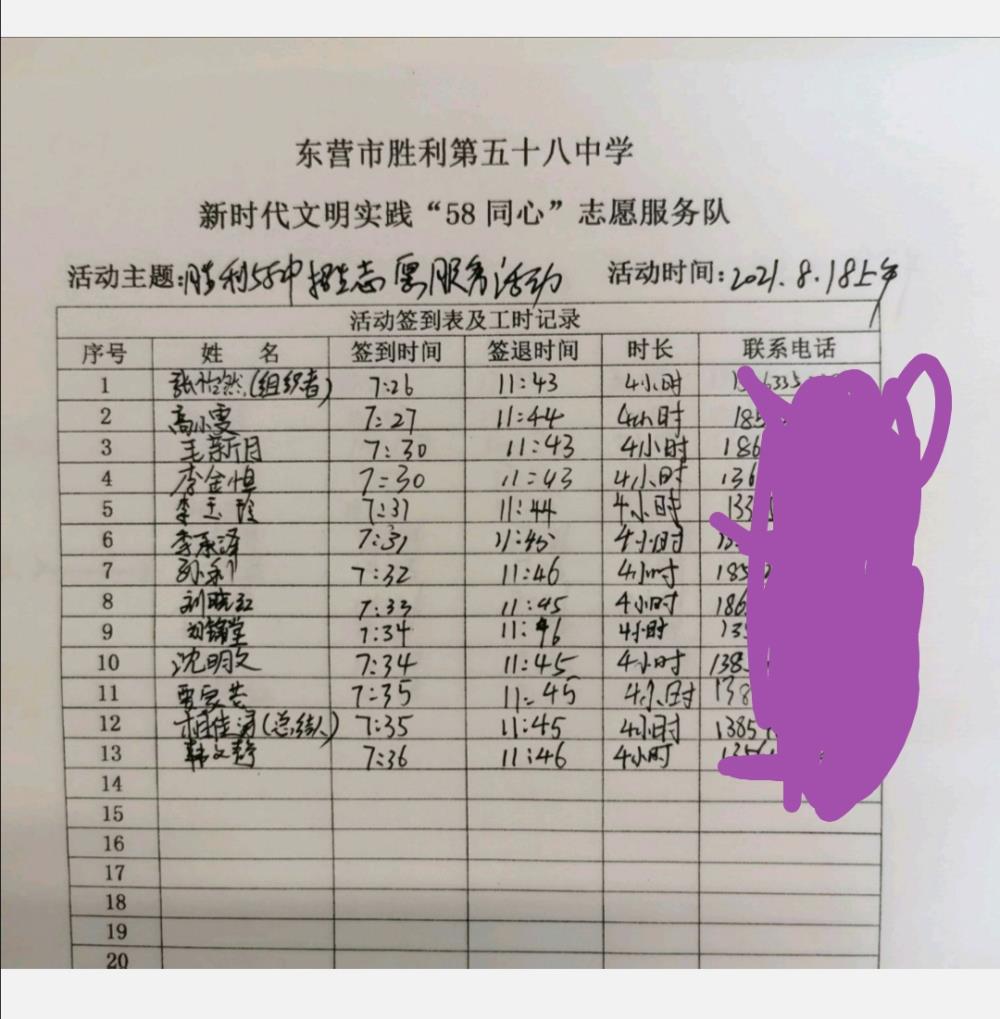 东营市胜利第五十八中学
新时代文明实践“58 同心”志愿服务队
活动主题:胜利58中招生志愿服务活动 活动时间:2021.8.18上午
活动签到表及工时记录
序号 姓 名 签到时间 签退时间 时长 联系电话
1 张怡然(组织者) 7:26 11:43 4小时
2 高小雯 7:27 11:44 4小时 185
3 毛新月 7:30 11:43 4小时 186
4 李金恒 7:30 11:43 4小时 136
5 李玉 7:31 11:44 4小时 133
6 李承泽 7:31 11:45 4小时
7 孙利 7:32 11:46 4小时 185
8 刘晓红 7:33 11:45 4小时 186
9 刘锦堂 7:34 11:46 4小时 13
10 沈明文 7:34 11:45 4小时 138
11 贾 7:35 11:45 4小时 138
12 相佳 (总结人) 7:35 11:45 4小时 1385
13 韩文静 7:36 11:46 4小时 1356
14
15
16
17
18
19
20